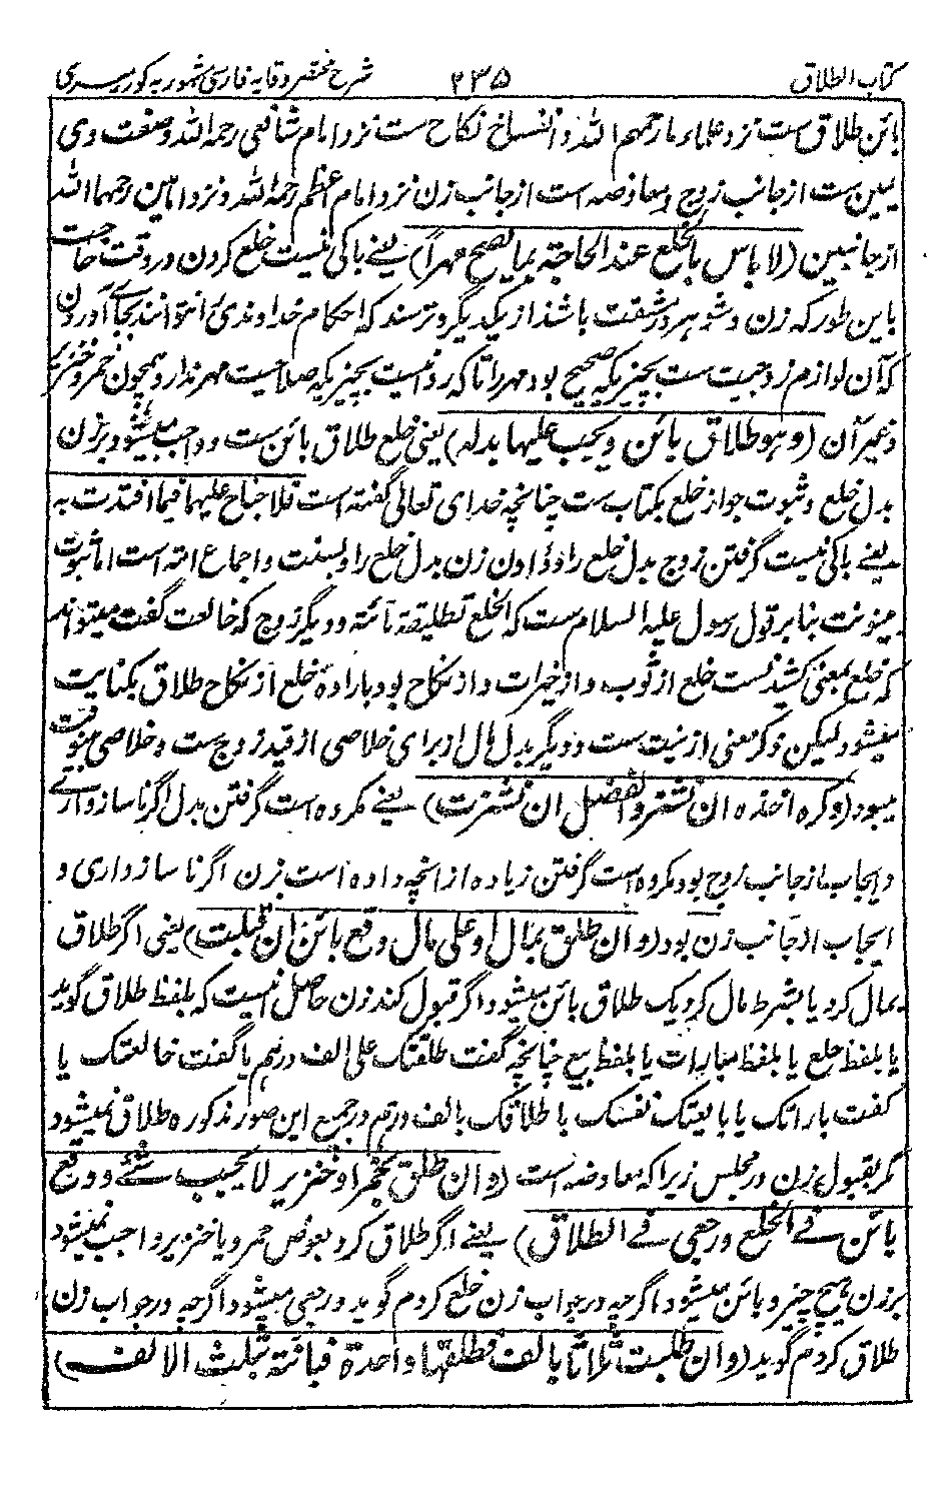 کتاب الطلاق ۲۳۵ شرح مختصر وقایه فارسی مشهور به کور میسری
بائن طلاق ست نزد علماء ما رحمهم الله و انفساخ نکاح ست نزد امام شافعی رحمه الله و صفت وی
یمین ست از جانب زوج و معاوضه است از جانب زن نزد امام اعظم رحمه الله و نزد امامین رحمهما الله
از جانبین (لا باس بالخلع عند الحاجة بما یصح مهرا) یعنے باکی نیست خلع کردن در وقت حاجت
باین طور که زن و شوهر در مشقت باشند از یکدیگر و ترسند که احکام خداوندی را نتوانند بجاے آوردن
که آن لوازم زوجیت ست بچیزیکه صحیح بود مهر را تا که روا نیست بچیزیکه صلاحیت مهر ندارد همچون خمر و خنزیر
و غیر آن (و هو طلاق بائن و یجب علیها بدله) یعنی خلع طلاق بائن ست و واجب میشود بر زن
بدل خلع و ثبوت جواز خلع بکتاب ست چنانچه خدای تعالی گفته است فلا جناح علیهما فیما افتدت به
یعنے باکی نیست گرفتن زوج بدل خلع را و دادن زن بدل خلع را و بسنت و اجماع امة است اما ثبوت
بینونت بنا بر قول رسول علیه السلام ست که الخلع تطلیقة بائنة و دیگر زوج که خالعت گفت میتواند
که خلع بمعنی کشیدنست خلع از ثوب و از خیرات و از نکاح بود باراده خلع از نکاح طلاق بکنایت
میشود لیکن ذکر معنی از نیت ست و دیگر بدل مال از برای خلاصی از قید زوج ست و خلاصی ببینونت
میبود (و کره اخذه ان نشز و الفضل ان نشزت) یعنے مکروه است گرفتن بدل اگر ناسازوارئے
و ایجاب از جانب زوج بود مکروه است گرفتن زیاده از انچه داده است بزن اگر ناسازواری و
ایجاب از جانب زن بود (و ان طلق بمال او علی مال وقع بائن ان قبلت) یعنی اگر طلاق
بمال کرد یا بشرط مال کرد یک طلاق بائن میشود اگر قبول کند زن حاصل انیست که بلفظ طلاق گوید
یا بلفظ خلع یا بلفظ مبارات یا بلفظ بیع چنانچه گفت طلقتک علی الف درهم یا گفت خالعتک یا
گفت باراتک یا بایعتک نفسک یا طلاقک بالف درهم در جمیع این صور مذکوره طلاق نمیشود
مگر بقبول زن در مجلس زیرا که معاوضه است (و ان طلق بخمر او خنزیر لا یجب شئے و وقع
بائن فے الخلع و رجعی فے الطلاق) یعنے اگر طلاق کرد بعوض خمر و یا خنزیر واجب نمیشود
بر زن هیچ چیز و بائن میشود اگر چه در جواب زن خلع کردم گوید و رجعی میشود اگر چه در جواب زن
طلاق کردم گوید (و ان طلبت ثلاثا بالف فطلقها واحدة فبائنة بثلث الالف)